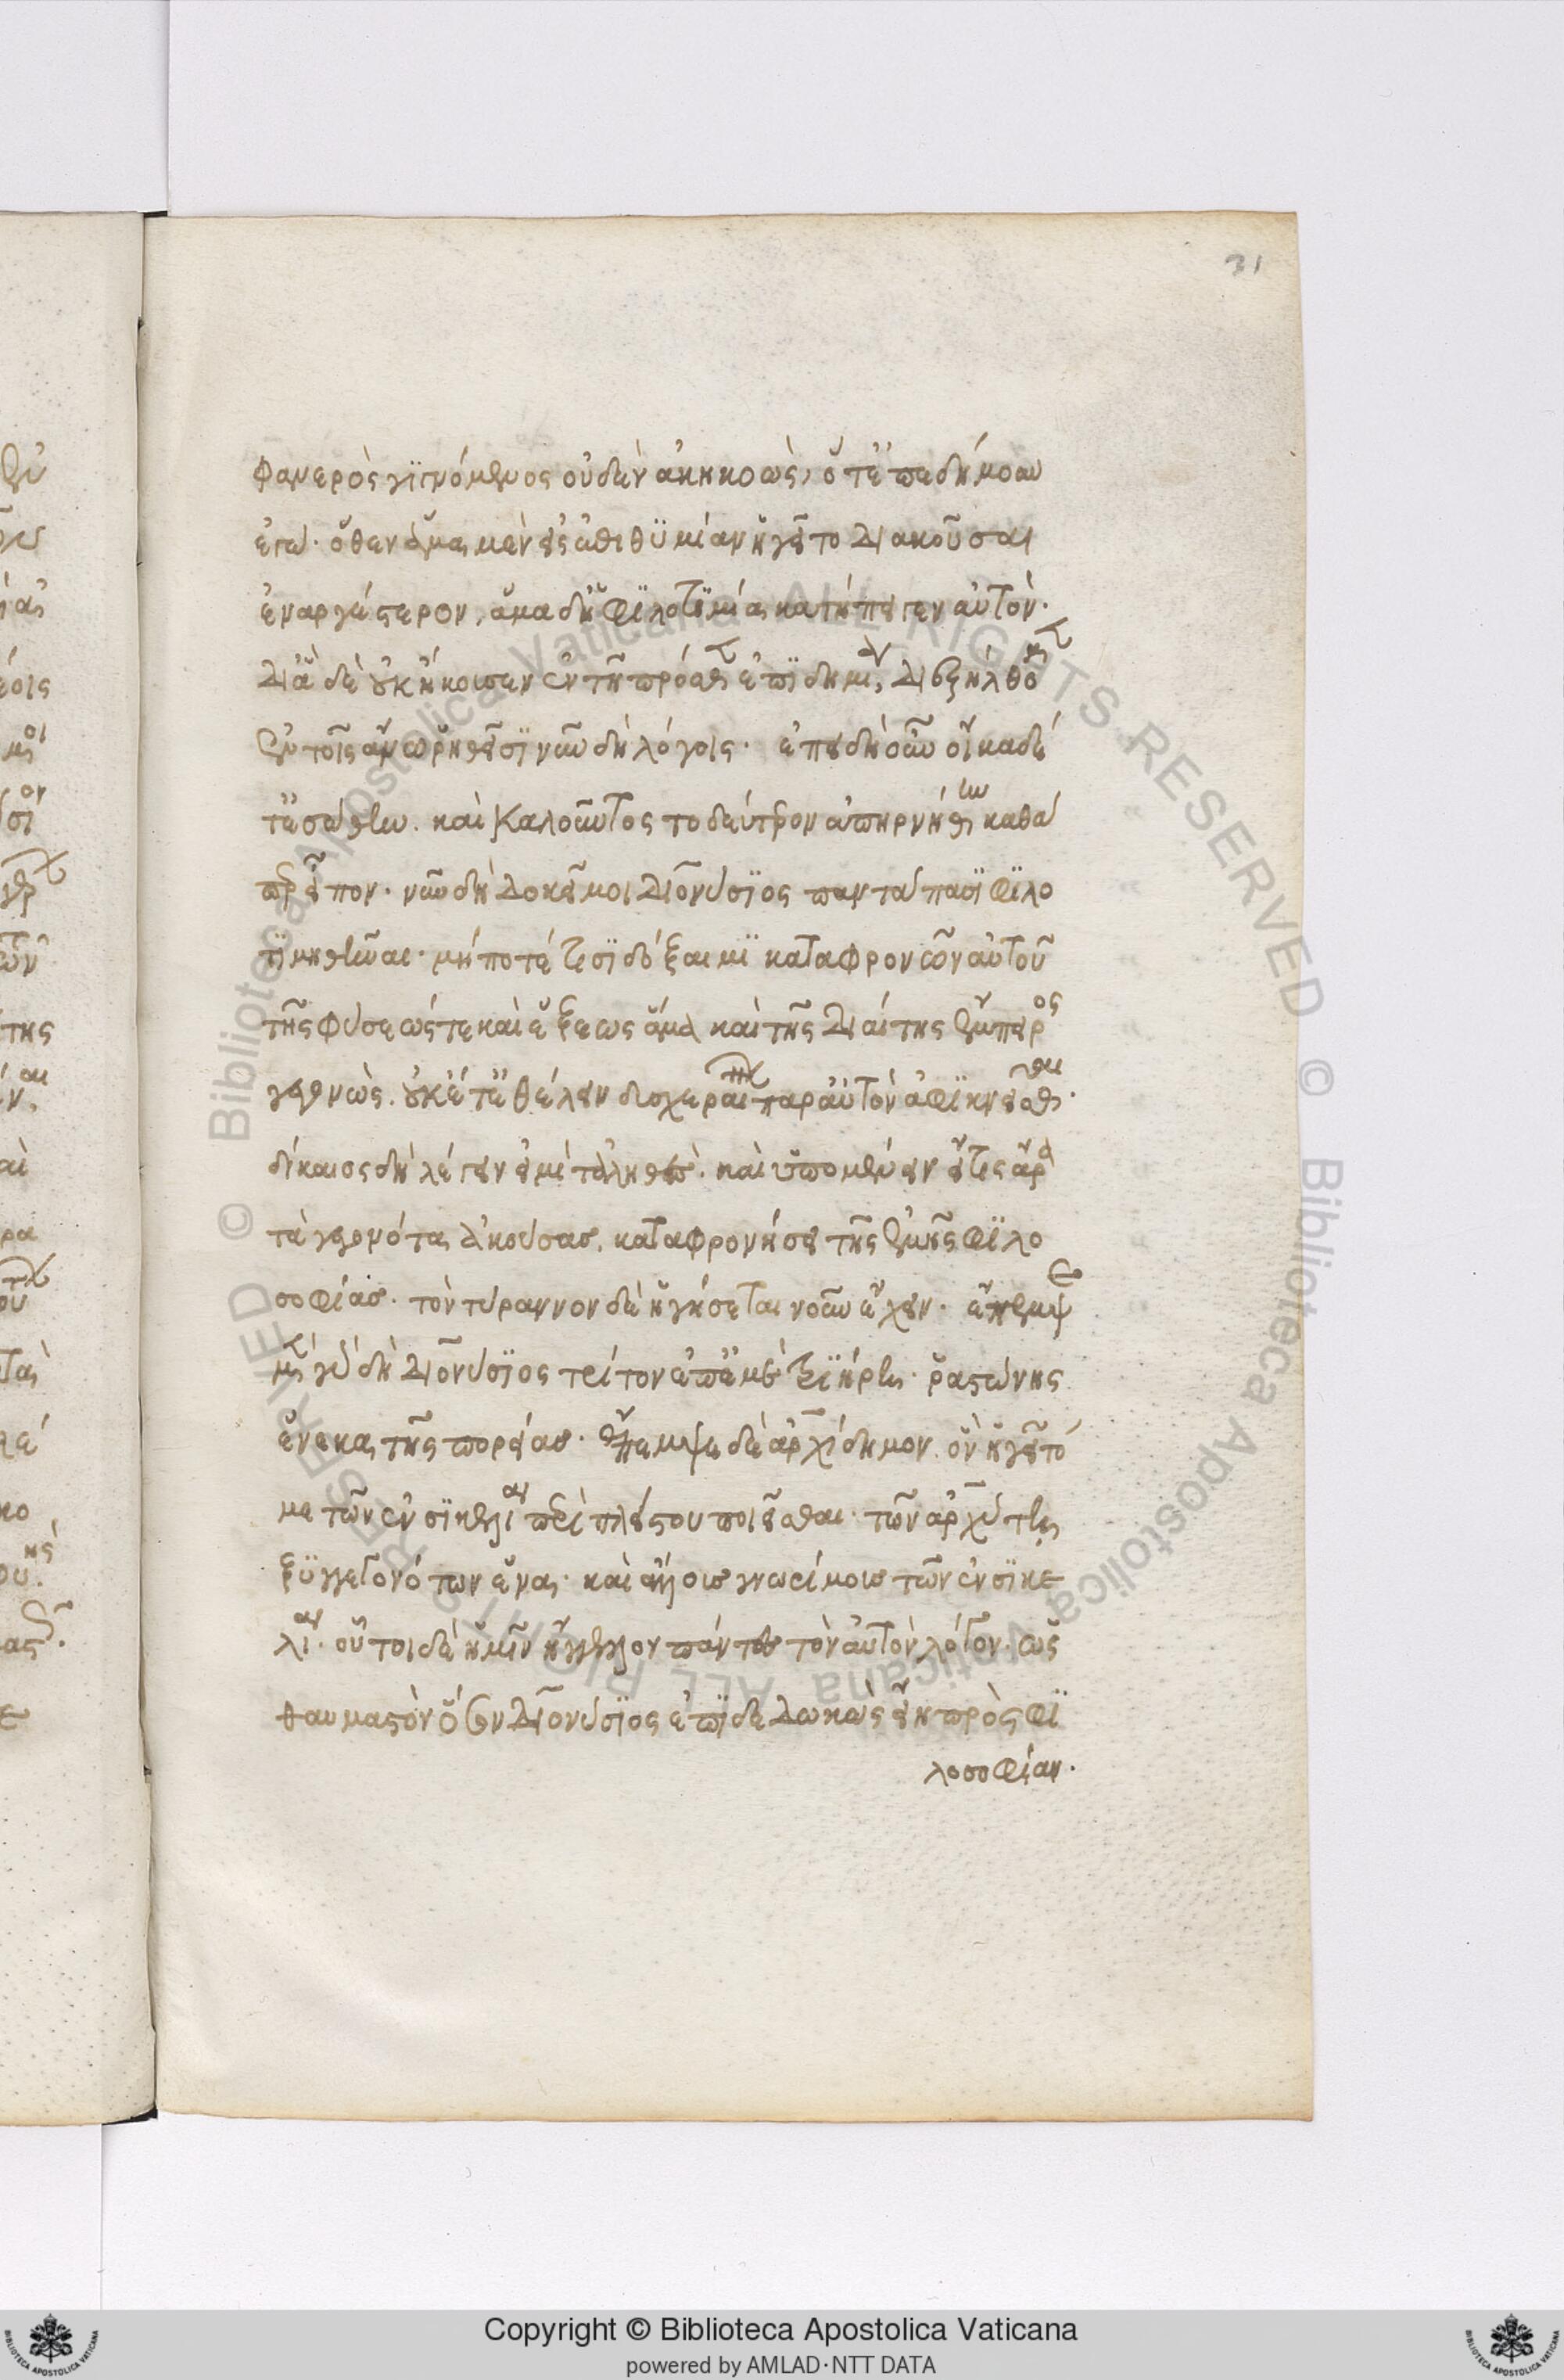 31
φανερὸς γιγνόμενος οὐδὲν ἀκηκοὼς, ὅτ᾽ ἐπεδήμουν
ἐγώ. ὅθεν ἅμα μὲν εἰς ἐπιθυμίαν ᾔει τοῦ διακοῦσαι
ἐναργέστερον, ἅμα δ᾽ ἡ φιλοτιμία κατήπειγεν αὐτόν.
δι᾽ ἃ δὲ οὐκ ἤκουσεν ἐν τῇ πρόσθεν ἐπιδημίᾳ, διεξήλθομεν
ἐν τοῖς ἄνω ῥηθεῖσι νῦν δὴ λόγοις. ἐπειδὴ οὖν οἴκαδέ
τ᾽ ἐσώθην. καὶ καλοῦντος τὸ δεύτερον ἀπηρνήθην καθά
περ εἶπον. νῦν δὴ δοκεῖ μοι Διονύσιος παντάπασι φιλο
τιμηθῆναι. μή ποτέ τισι δόξαιμι καταφρονῶν αὐτοῦ
τῆς φύσεώς τε καὶ ἕξεως ἅμα καὶ τῆς διαίτης ἔμπειρος
γεγονώς. οὐκέτ᾽ ἐθέλειν δυσχεραίνων παρ᾽ αὐτὸν ἀφικνεῖσθαι.
δίκαιος δὴ λέγειν εἰμὶ τἀληθὲς. καὶ ὑπομένειν εἴ τις ἄρα
τὰ γεγονότα ἀκούσας, καταφρονήσει τῆς ἐμῆς φιλο
σοφίας. τὸν τύραννον δὲ ἡγήσεται νοῦν ἔχειν. ἔπεμψε
μὲν γὰρ δὴ Διονύσιος τρίτον ἐπ᾽ ἐμὲ τριήρη. ῥᾳστώνης
ἕνεκα τῆς πορείας. ἔπεμψε δὲ ἀρχίδημον ὃν ἡγεῖτό
με τῶν ἐν σικελίᾳ περὶ πλείστου ποιεῖσθαι. τῶν ἀρχύτῃ
ξυγγεγονότων ἕνα. καὶ ἄλλους γνωρίμους τῶν ἐν σικε
λίᾳ. οὗτοι δὲ ἡμῖν ἤγγελλον πάντες τὸν αὐτὸν λόγον. ὡς
θαυμαστὸν ὅσον Διονύσιος ἐπιδεδωκὼς εἴη πρὸς φι
λοσοφίαν.
Copyright © Biblioteca Apostolica Vaticana
powered by AMLAD·NTT DATA